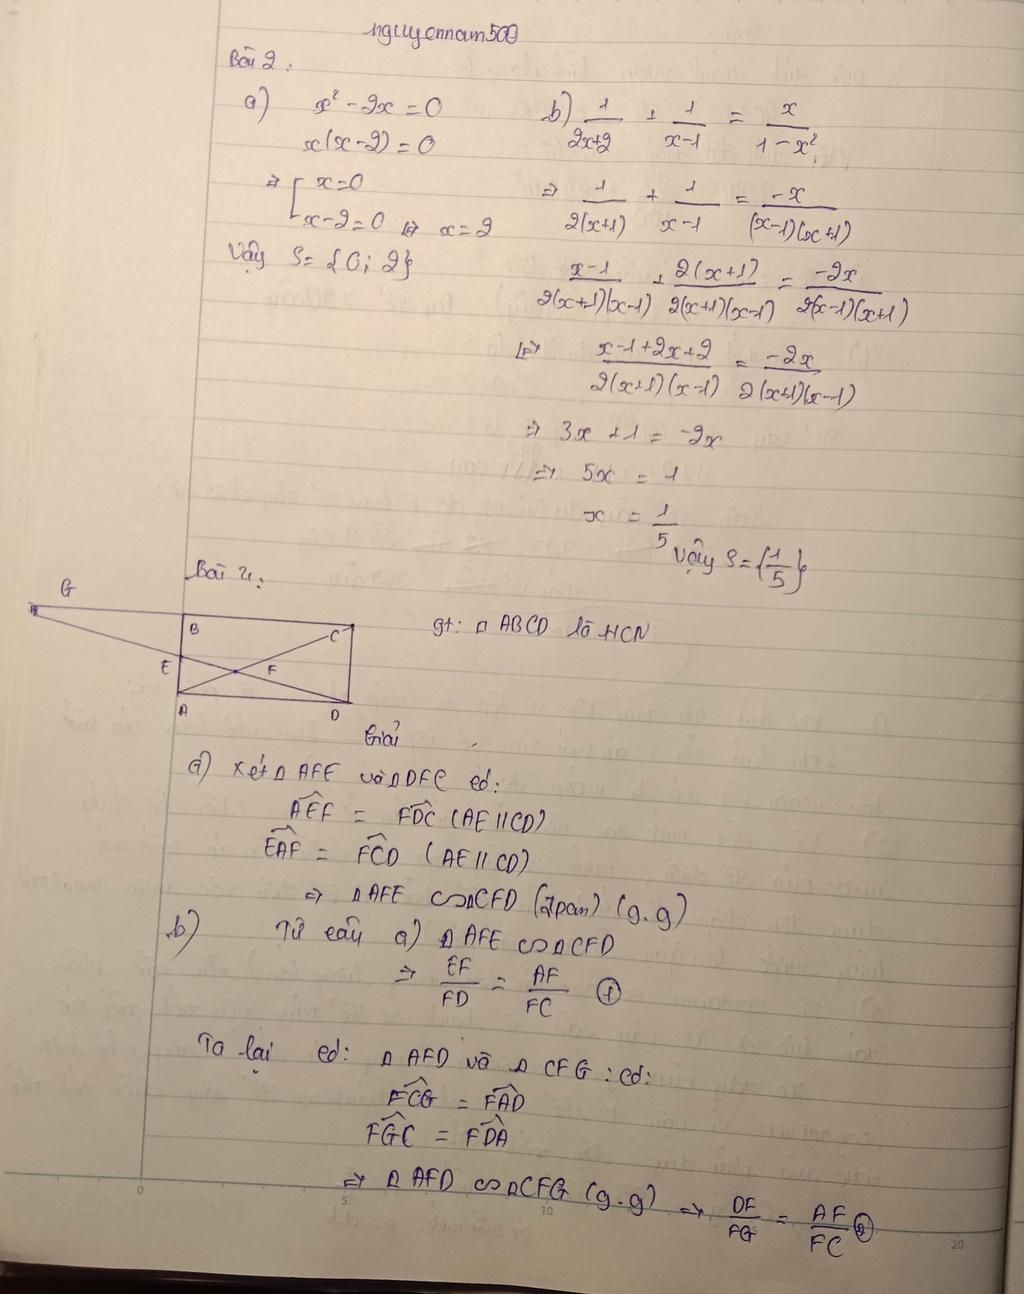 nguyennam500
Bài 2:
a) x² - 2x = 0
x(x-2) = 0
⇒ [ x=0
x-2=0 ⇔ x=2
Vậy S = {0; 2}
b) 1/(2x+2) + 1/(x-1) = x/(1-x²)
⇒ 1/(2(x+1)) + 1/(x-1) = -x/((x-1)(x+1))
(x-1)/(2(x+1)(x-1)) + 2(x+1)/(2(x+1)(x-1)) = -2x/(2(x-1)(x+1))
⇔ (x-1+2x+2)/(2(x+1)(x-1)) = -2x/(2(x+1)(x-1))
⇒ 3x + 1 = -2x
⇒ 5x = 1
x = 1/5
Vậy S = {1/5}
Bài 4:
G
B
C
E
F
A
D
gt: □ ABCD là HCN
Giải
a) Xét Δ AFE và Δ DFC có:
AÊF = FD̂C (AE // CD)
EÂF = FĈD (AE // CD)
⇒ Δ AFE ∽ Δ CFD (g.g)
b) Từ câu a) Δ AFE ∽ Δ CFD
⇒ EF/FD = AF/FC ①
Ta lại có: Δ AFD và Δ CFG : có:
FĈG = FÂD
FĜC = FD̂A
⇒ Δ AFD ∽ Δ CFG (g.g) ⇒ DF/FG = AF/FC ②
0 5 10 20